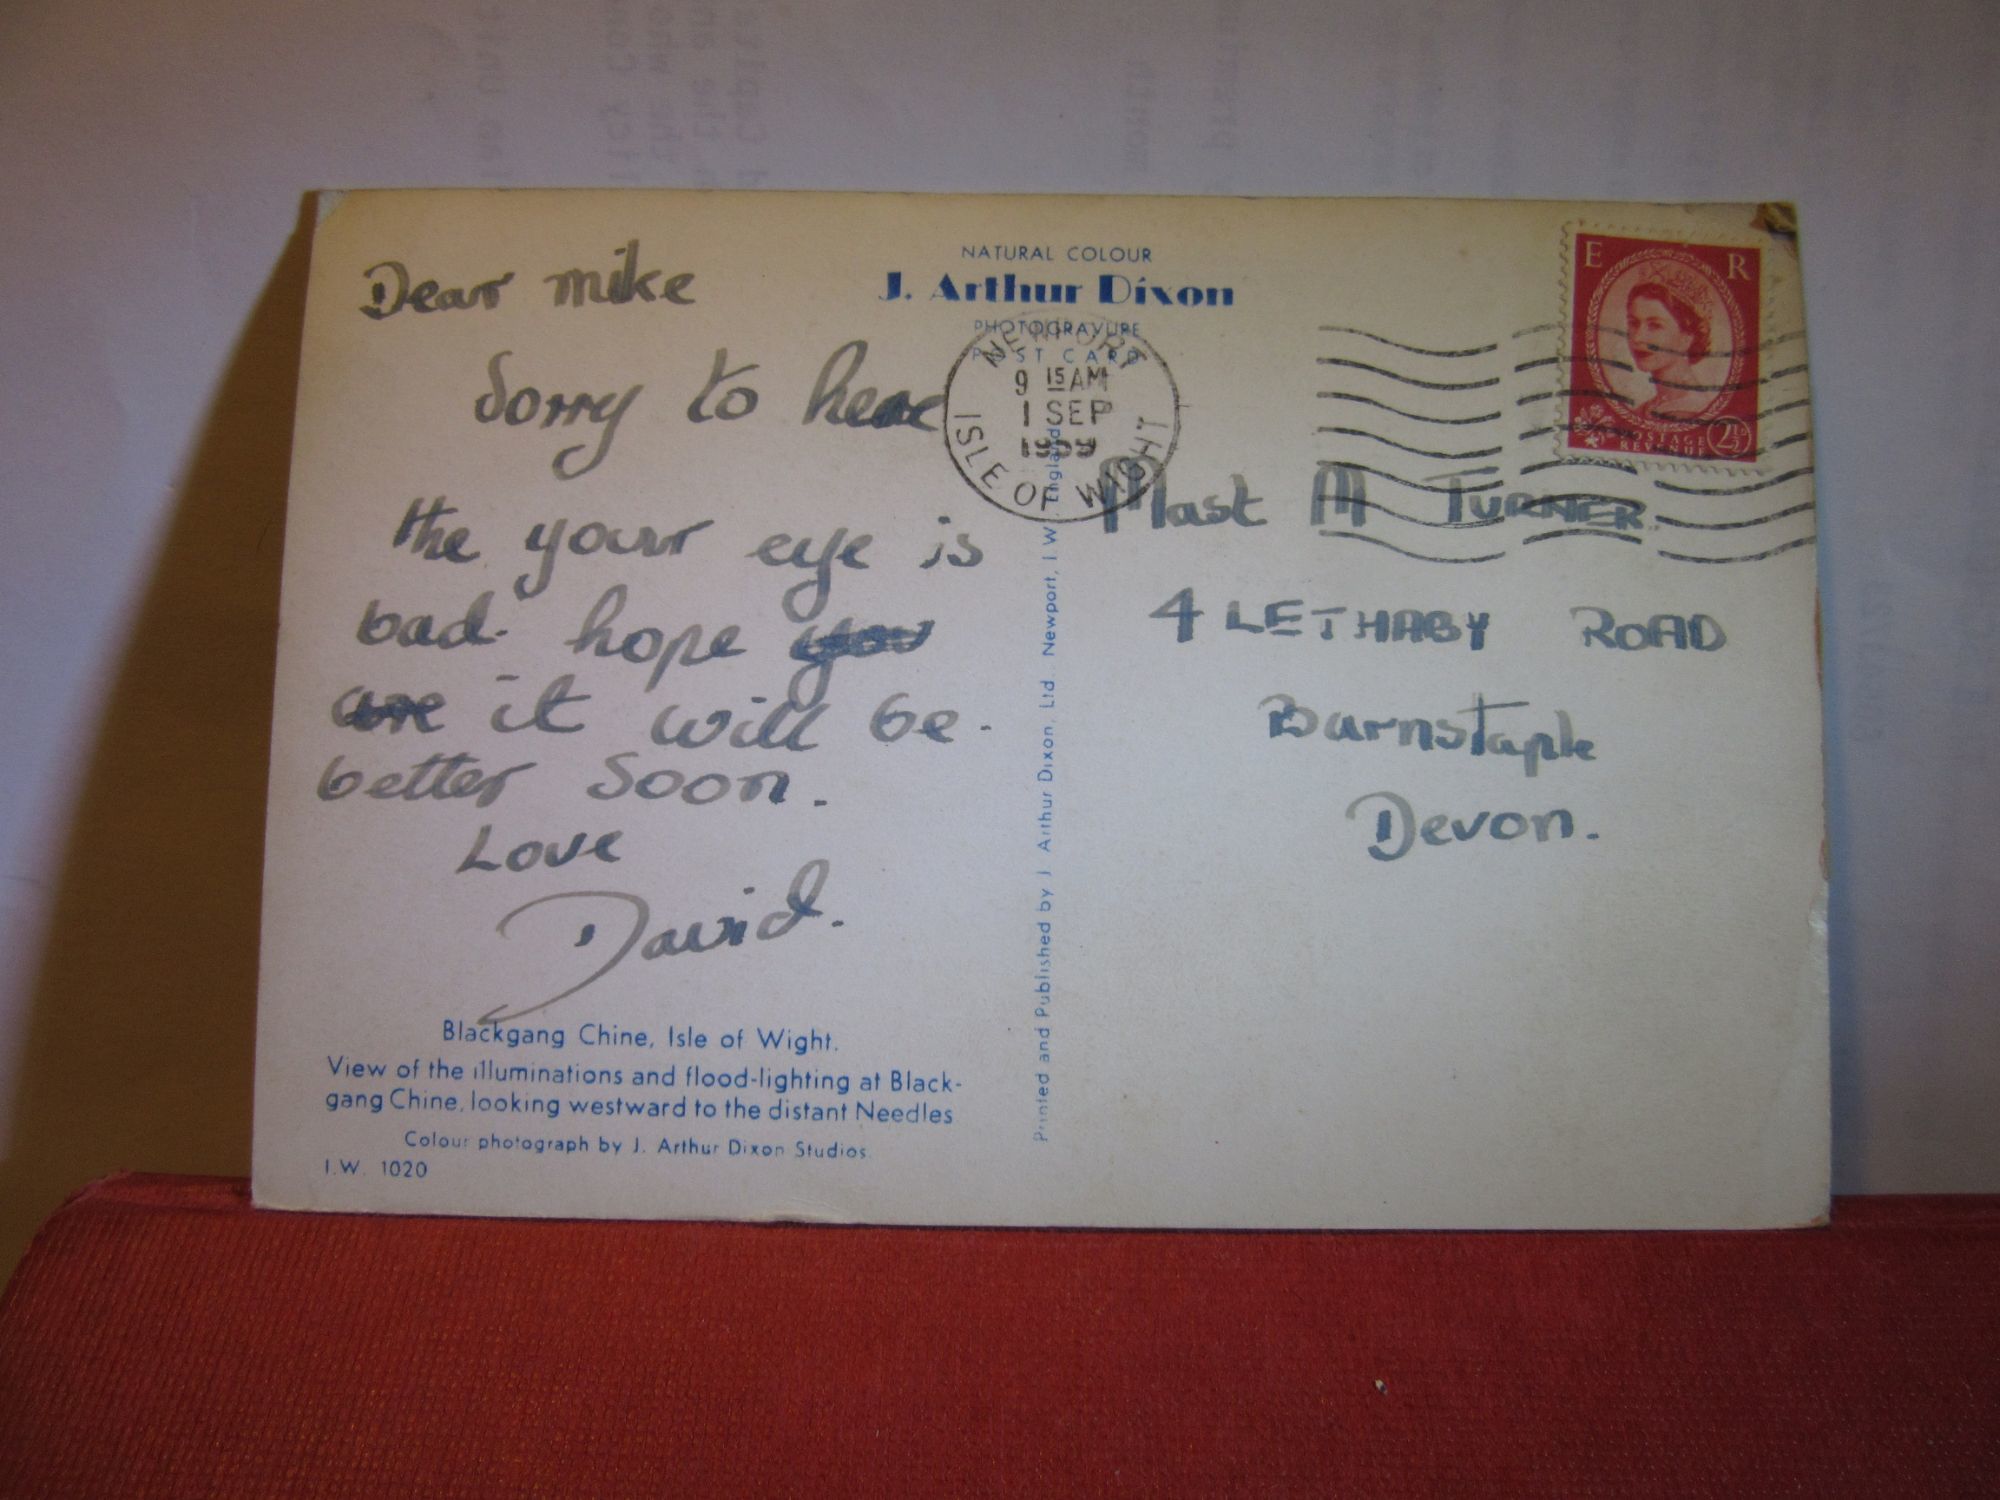 Dear mike
Sorry to here
the your eye is
bad. hope you
are it will be.
better soon.
Love
David.
Blackgang Chine, Isle of Wight.
View of the illuminations and flood-lighting at Black-
gang Chine, looking westward to the distant Needles
Colour photograph by J. Arthur Dixon Studios.
I.W. 1020
NATURAL COLOUR
J. Arthur Dixon
PHOTOGRAVURE
POST CARD
NEWPORT
9 15 AM
1 SEP
1959
ISLE OF WIGHT
Printed and Published by J. Arthur Dixon, Ltd. Newport, I.W. England
E R
POSTAGE
REVENUE
2½D
Mast M TURNER
4 LETHABY ROAD
Barnstaple
Devon.